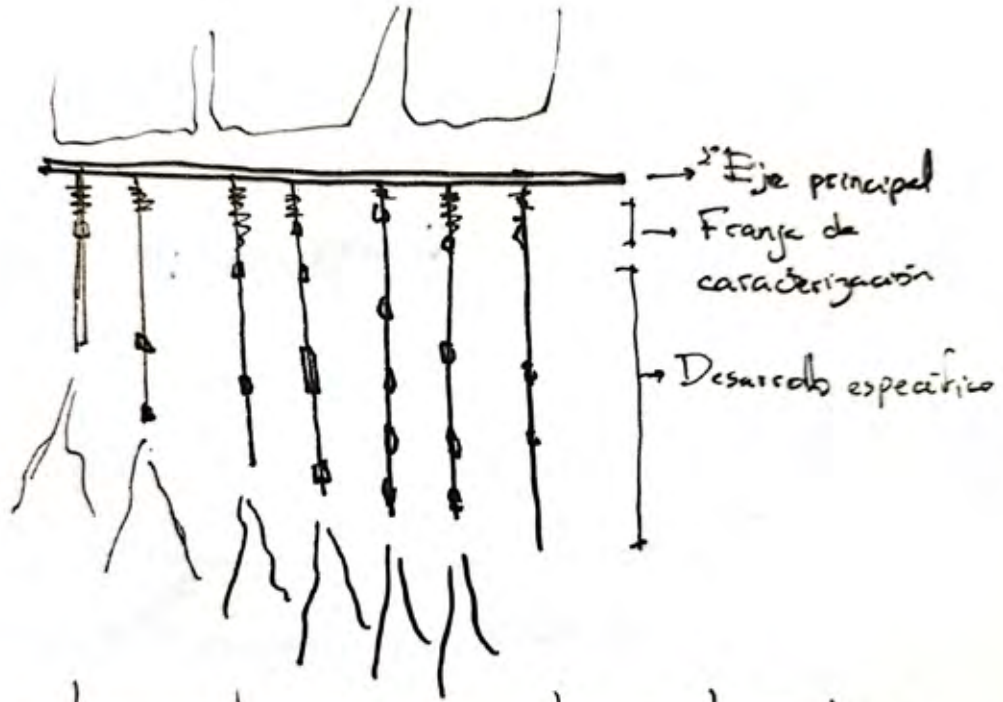 2º Eje principal
Franja de
caracterización
Desarrollo específico